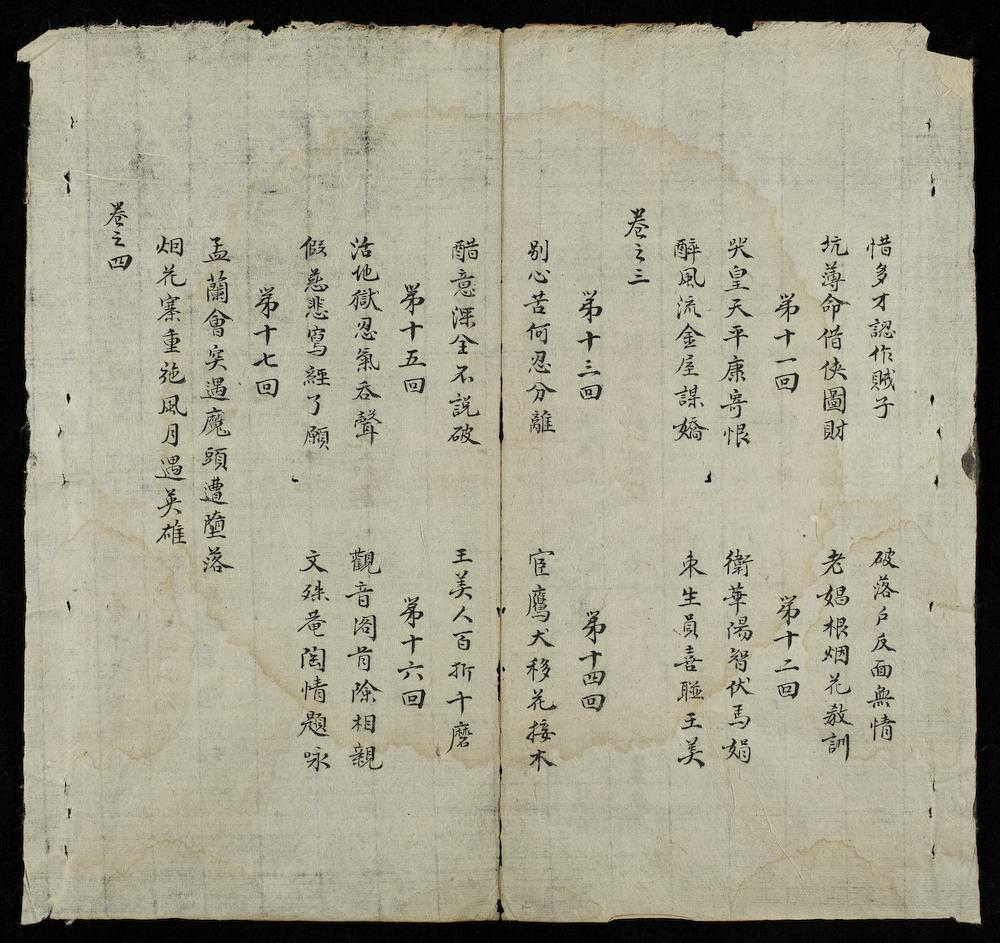 惜多才認作賊子
破落戶反面無情
坑薄命借俠圖財
老娼根烟花教訓
第十一回
第十二回
哭皇天平康寄恨
衛華陽智伏馬娟
醉風流金屋謀嬌
束生員喜聯王美
卷之三
第十三回
第十四回
別心苦何忍分離
宦鷹犬移花接木
醋意深全不說破
王美人百折千磨
第十五回
第十六回
活地獄忍氣吞聲
觀音阁冐除相親
假慈悲寫經了願
文殊菴陶情題咏
第十七回
孟蘭會突遇魔頭遭墮落
烟花寨重施風月遇英雄
卷之四